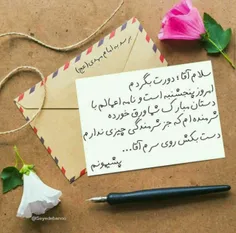 برسد به امام مهدی (عج)
سلام آقا، دورت بگردم
امروز پنجشنبه است و نامه اعمالم با
دستان مبارک شما ورق خورده
شرمنده ام که جز شرمندگی چیزی ندارم
دست بکش روی سرم آقا...
پشیمونم